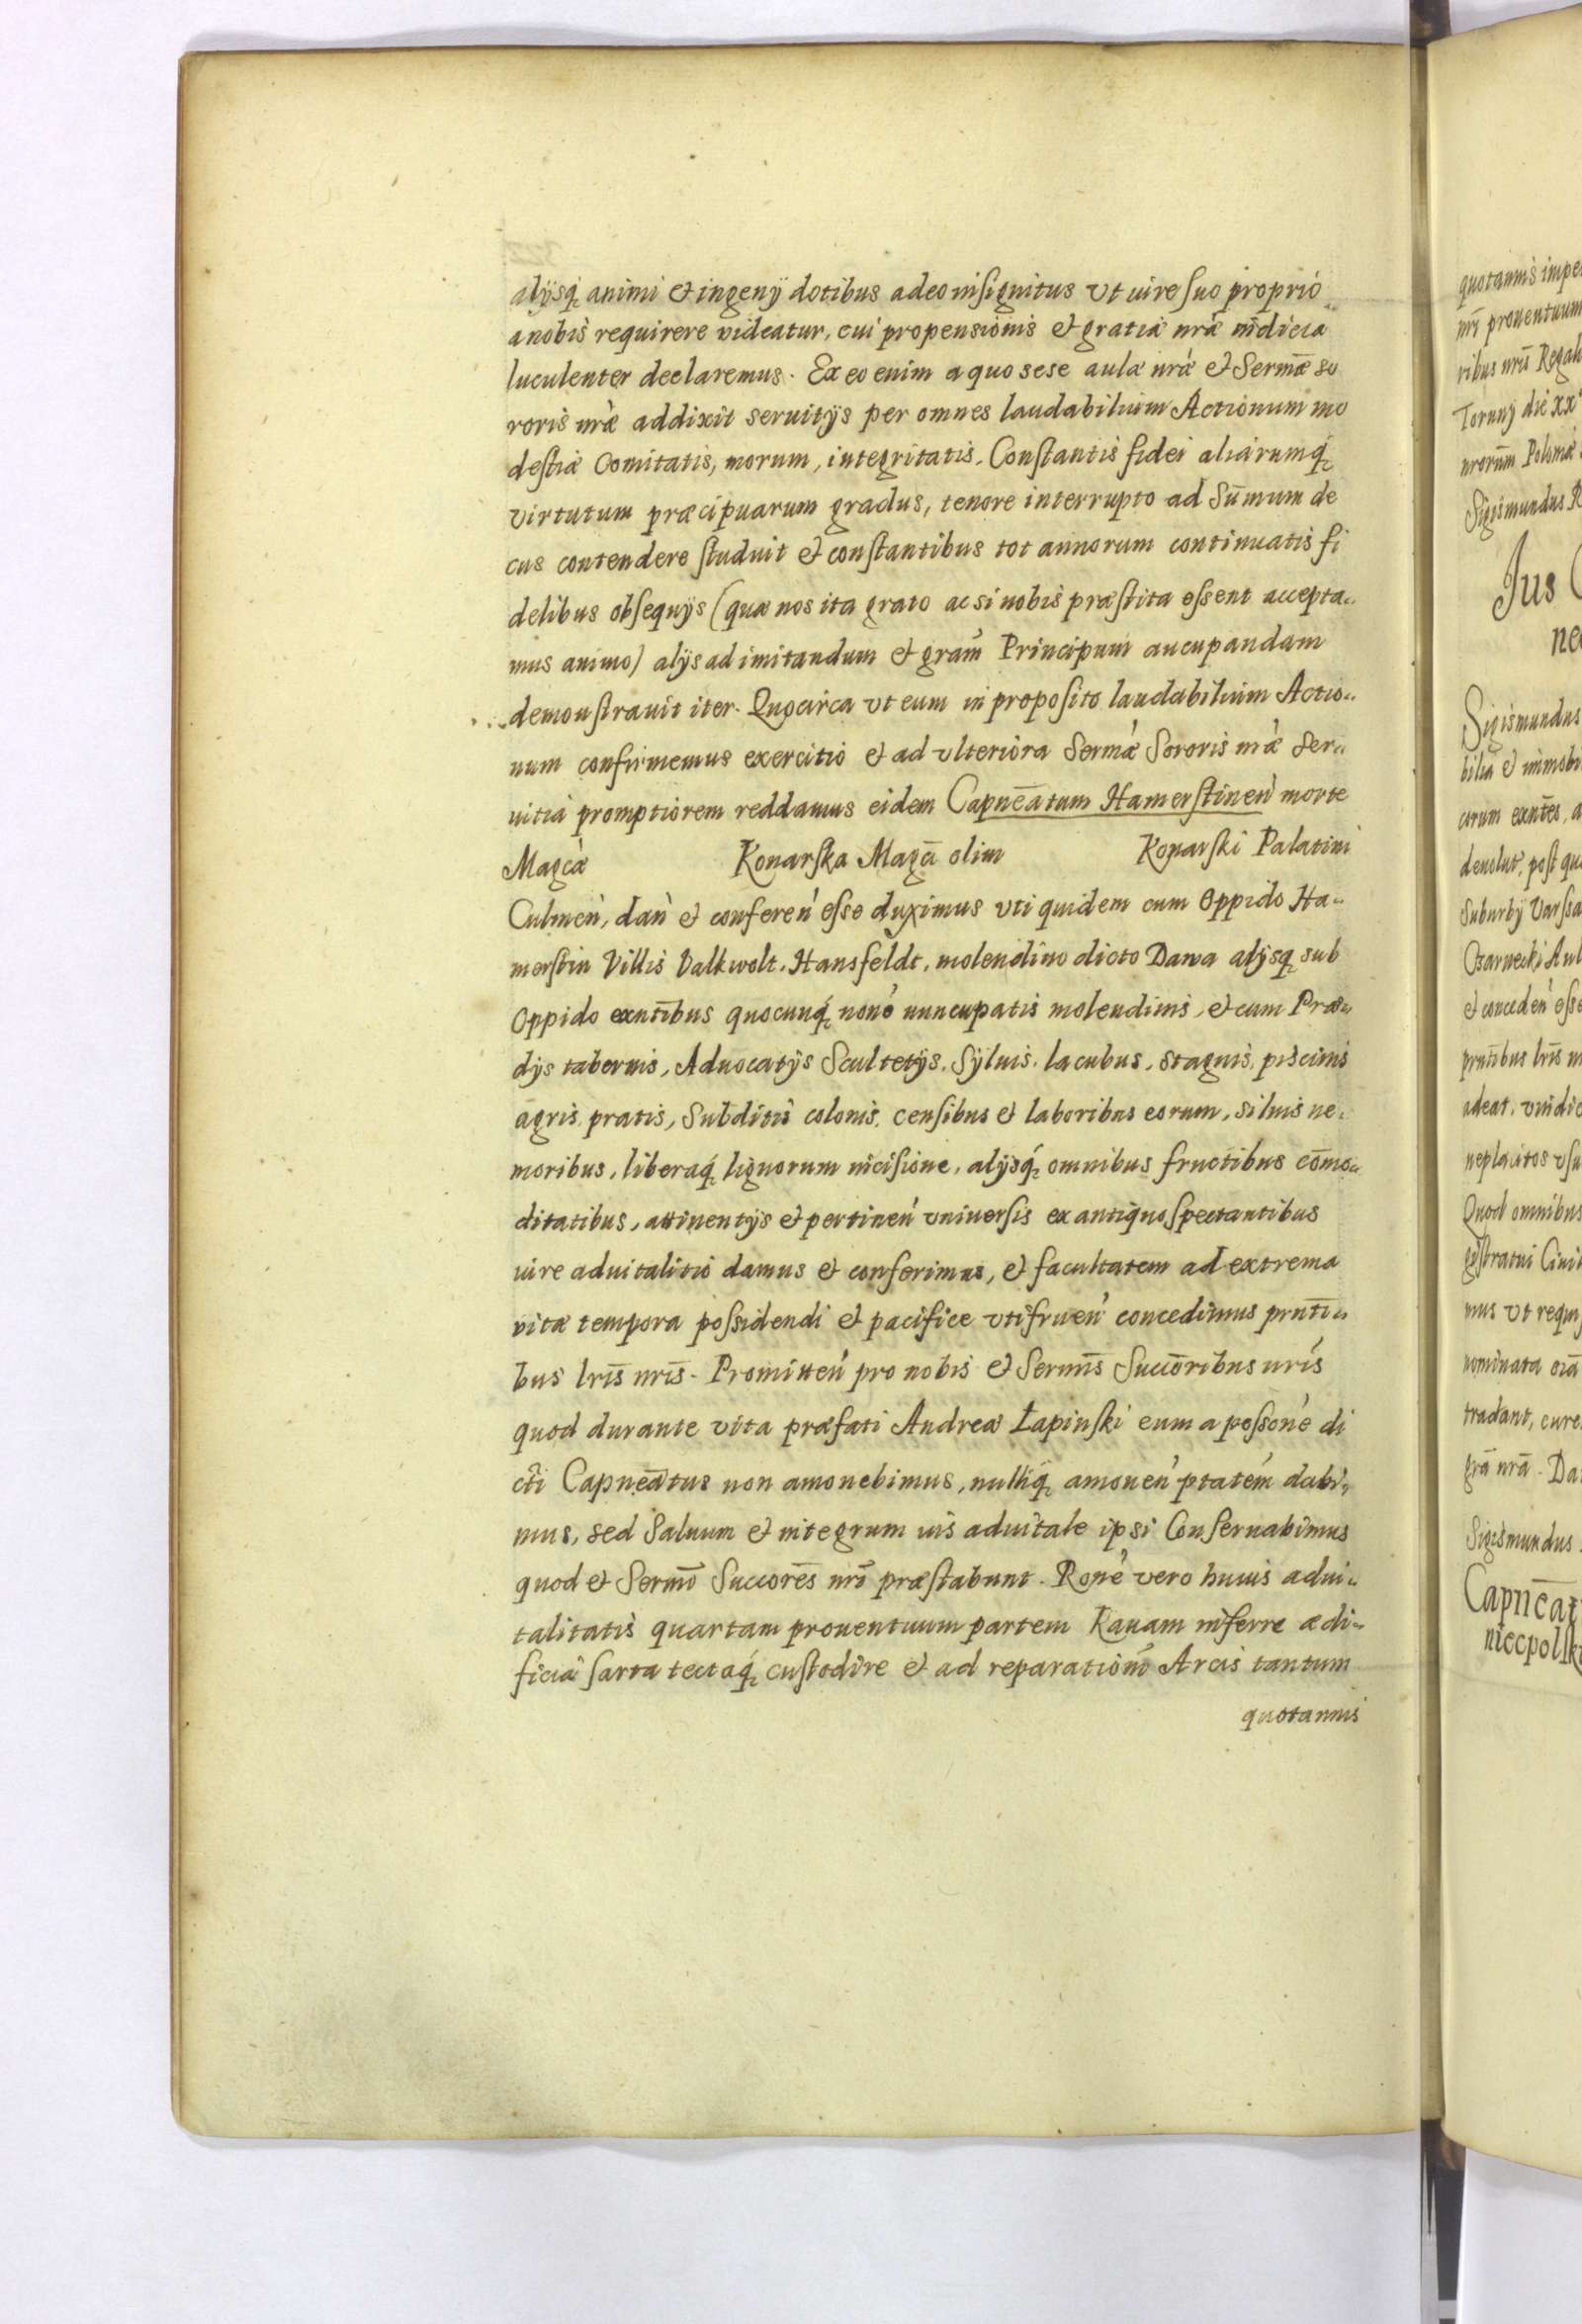 alÿsq animi et ingenÿ dotibus adeo insignitus vt iure suo proprio
a nobis requirere videatur, cui propensionis et gratiæ nr̃æ indicia
luculenter declaremus. Ex eo enim a quo sese aulæ nr̃æ et Serm̃æ so
roris nr̃æ addixit seruitÿs per omnes laudabilium Actionum mo
destiæ Comitatis, morum, integritatis, Constantis fidei aliarumq́
virtutum præcipuarum gradus, tenore interrupto ad Sum̃um de
cus contendere studuit et constantibus tot annorum continuatis fi
delibus obsequÿs (quæ nos ita grato ac si nobis præstita essent accepta„
mus animo) alÿs ad imitandum et grãm Principum aucupandam
demonstrauit iter. Quocirca vt eum in proposito laudabilium Actio„
num confirmemus exercitio et ad vlteriora Serm̃æ Sororis nr̃æ Ser„
uitia promptiorem reddamus eidem Capnẽatum Hamerstineń morte
Magcæ Konarska Magcĩ olim Konarski Palatini
Culmeń, dań et confereń esse duximus vti quidem cum Oppido Ha„
merstin Villis Valkwolt, Hansfeldt, molendino dicto Darva alÿsq sub
Oppido exñtibus quocunq́ noñe nuncupatis molendinis, et cum Præ„
dÿs tabernis, Aduocatÿs Scultetÿs, Sÿluis, lacubus, stagnis, piscinis
agris, pratis, Subditis colonis, censibus et laboribus eorum, siluis ne„
moribus, liberaq́ lignorum incisione, alÿsq́ omnibus fructibus com̃o„
ditatibus, attinentÿs et pertineń vniuersis ex antiquo spectantibus
iure aduitalitio damus et conferimus, et facultatem ad extrema
vitæ tempora possidendi et pacifice vtifrueń concedimus prñti„
bus lr̃is nr̃is. Promitteń pro nobis et Serm̃is Succõribus nr̃is
quod durante vita præfati Andreæ Łapinski eum a possoñe di
cti Capnẽatus non amonebimus, nulliq́ amoueń ptatem̃ dabi„
mus, sed Saluum et integrum ius aduitale ipsi Conseruabimus
quod et Serm̃i Succorẽs nr̃i præstabunt. Roñe vero huius adui„
talitatis quartam prouentuum partem Rauam inferre ædi„
ficia sarta tectaq́ custodire et ad reparationem̃ Arcis tantum
quotannis